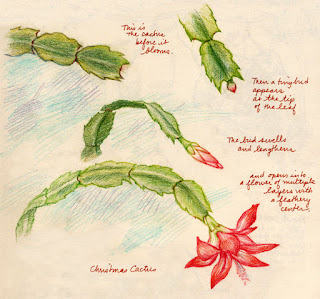 This is
the cactus
before it
blooms.
Then a tiny bud
appears
at the tip
of the leaf
The bud swells
and lengthens
and opens into
a flower of multiple
layers with
a feathery
center.
Christmas Cactus